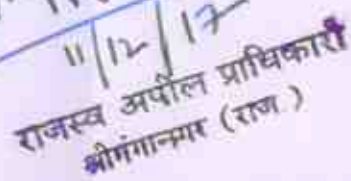 11/12/17
राजस्व अपील प्राधिकारी
श्रीगंगानगर (राज.)